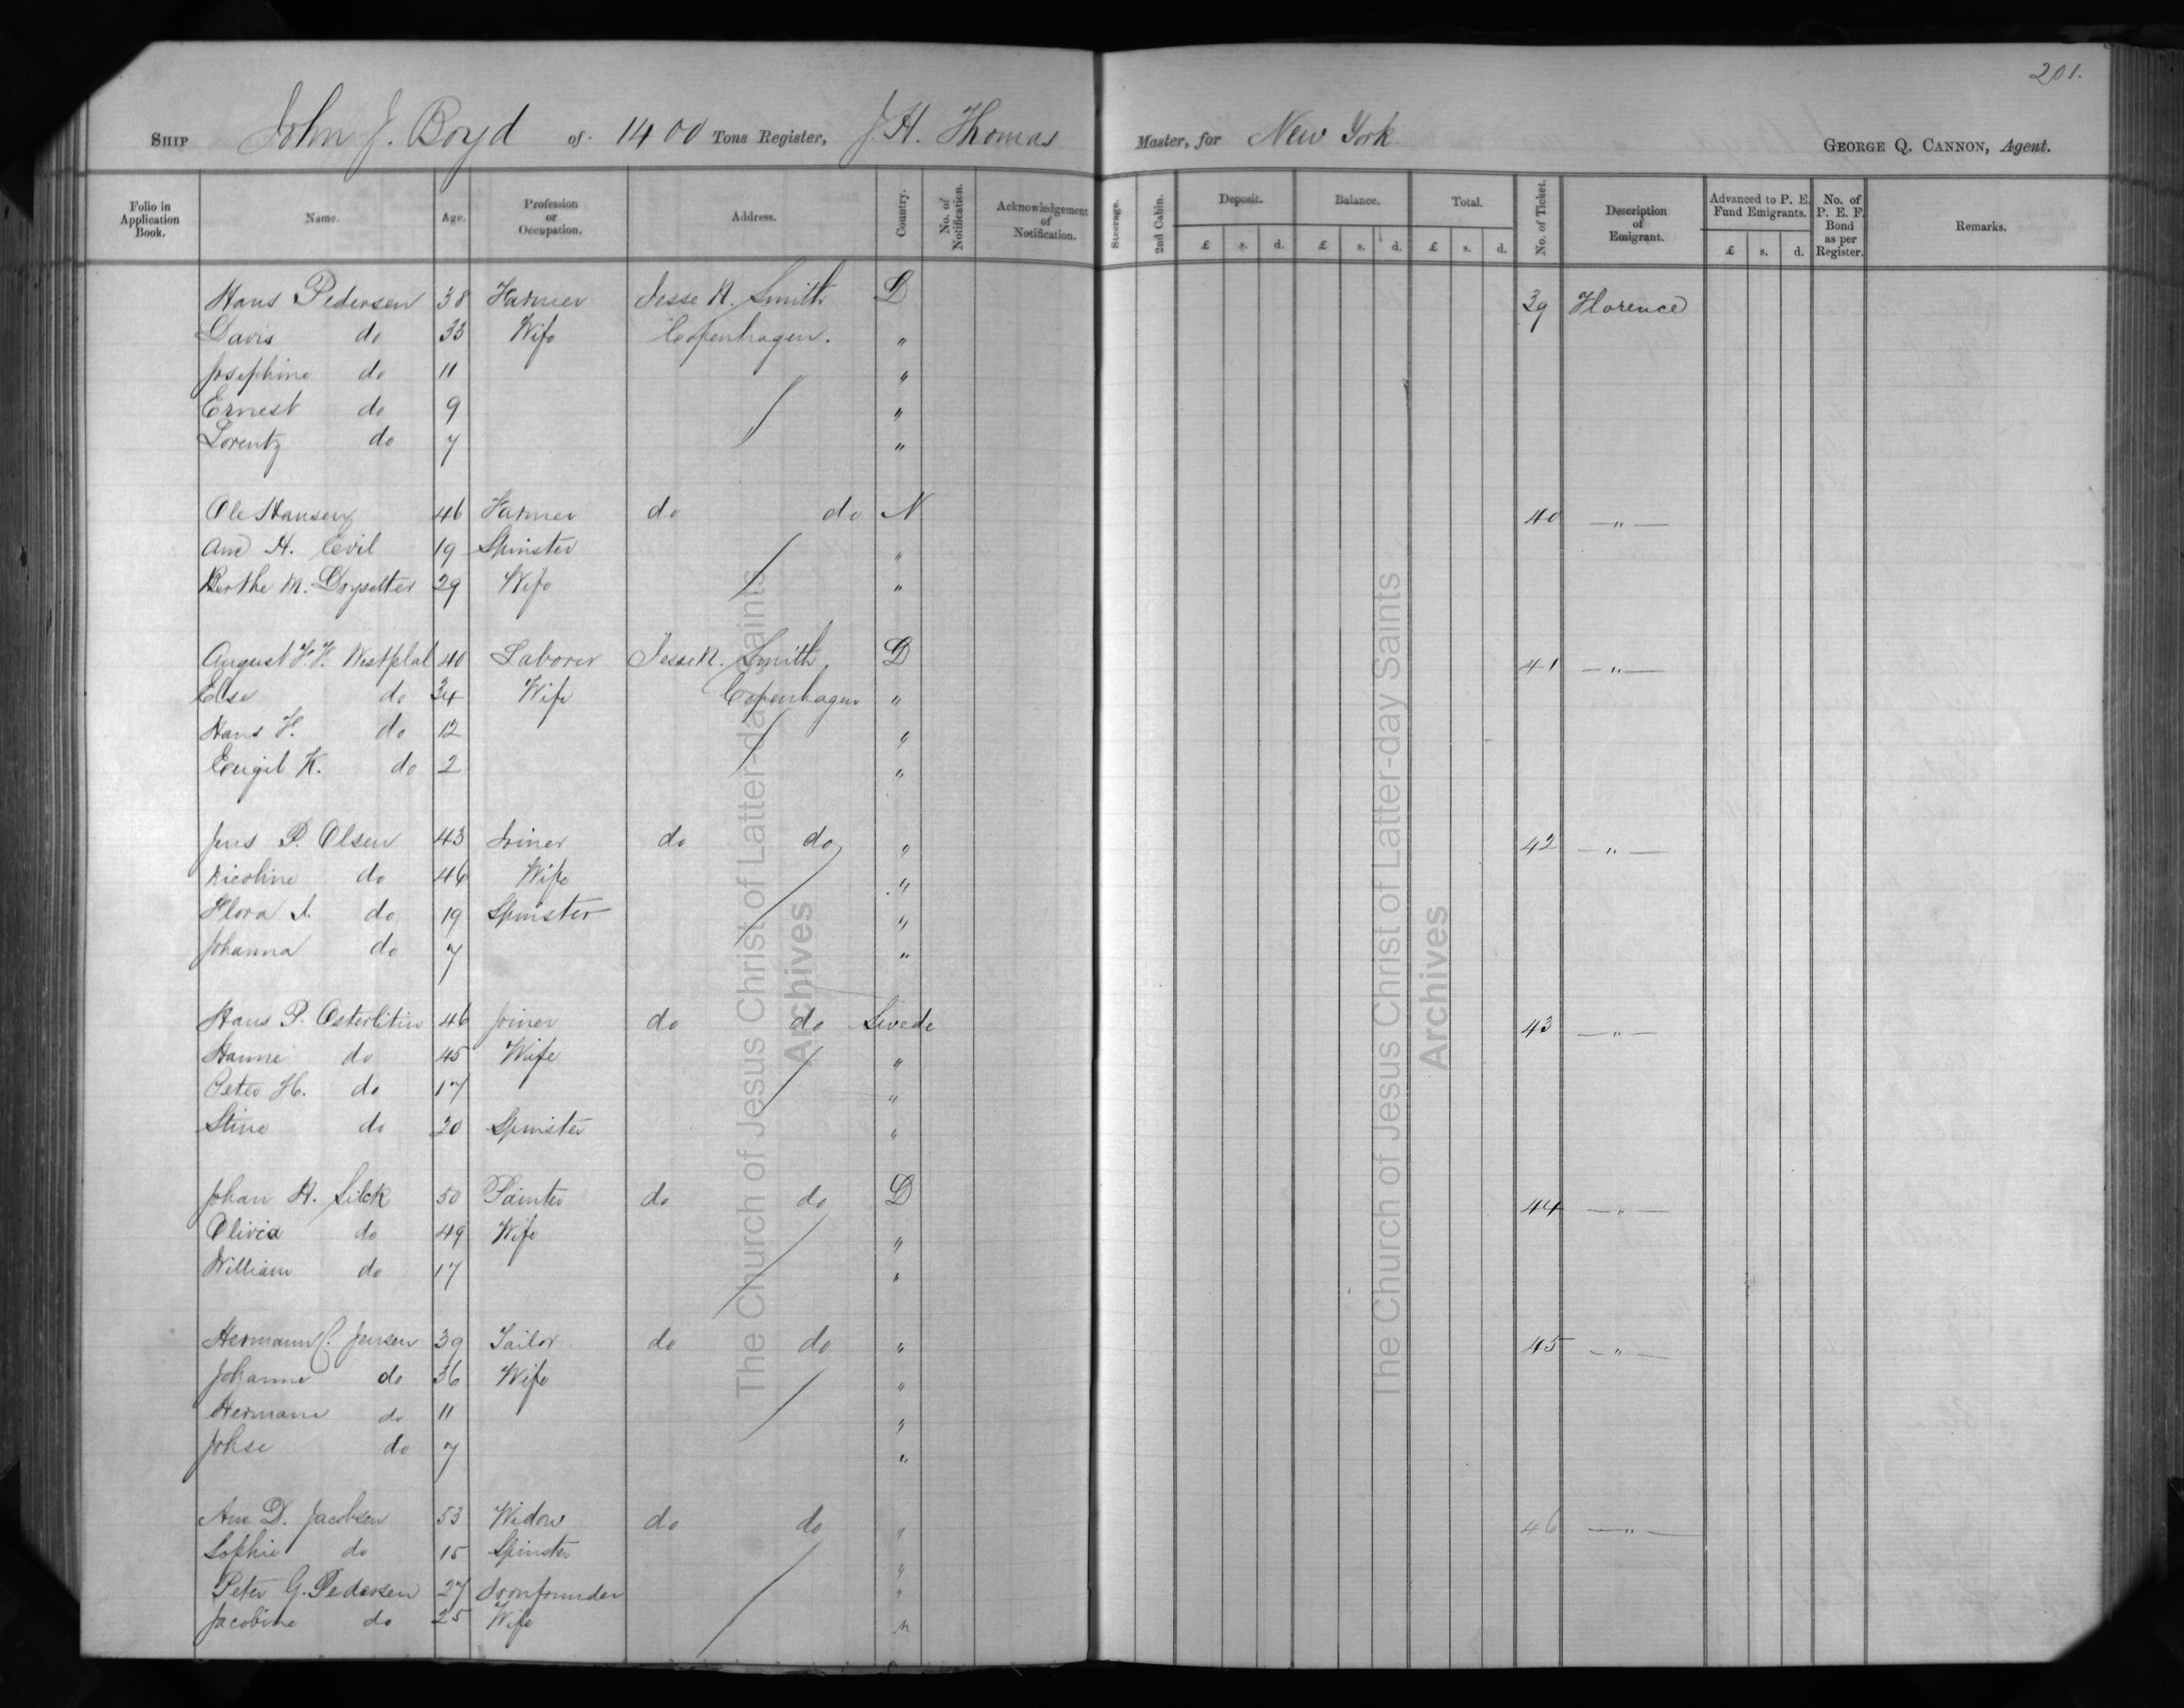 201.
SHIP John J. Boyd of 1400 Tons Register, J. H. Thomas Master, for New York. GEORGE Q. CANNON, Agent.
Folio in Application Book. Name. Age. Profession or Occupation. Address. Country. No. of Notification. Acknowledgement of Notification. Steerage. 2nd Cabin. Deposit. Balance. Total. No. of Ticket. Description of Emigrant. Advanced to P. E. Fund Emigrants. No. of P. E. F. Bond as per Register. Remarks.
£ s. d. £ s. d. £ s. d. £ s. d.
Hans Pedersen 38 Farmer Jesse N. Smith D 39 Florence
Davis do 33 Wife Copenhagen. "
Josephine do 11 "
Ernest do 9 "
Lorentz do 7 "
Ole Hansen 46 Farmer do do N 40 — " —
Ane H. 19 Spinster "
Berthe M. 29 Wife "
August F. F. Westphal 40 Laborer Jesse N. Smith, D 41 — " —
Else do 34 Wife Copenhagen "
Hans F. do 12 "
K. do 2 "
Jens P. Olsen 43 Joiner do do " 42 — " —
Nicoline do 46 Wife "
Flora J. do 19 Spinster "
Johanna do 7 "
Hans P. 46 Joiner do do Swede 43 — " —
Hanne do 45 Wife "
Peter H. do 17 "
Stine do 20 Spinster "
Johan H. Silck 50 Painter do do D 44 — " —
Olivia do 49 Wife "
William do 17 "
Hermann C. Jensen 39 Tailor do do " 45 — " —
Johanne do 36 Wife "
Hermann do 11 "
Johse do 7 "
Ane D. Jacobsen 53 Widow do do " 46 — " —
Sophie do 15 Spinster "
Peter G. Pedersen 27 Ironfounder "
Jacobine do 25 Wife "
The Church of Jesus Christ of Latter-day Saints
Archives
The Church of Jesus Christ of Latter-day Saints
Archives